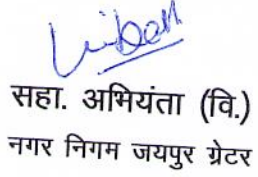 सहा. अभियंता (वि.)
नगर निगम जयपुर ग्रेटर